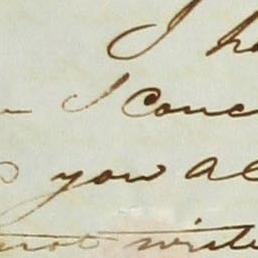 I ha
I conc
you al
not write